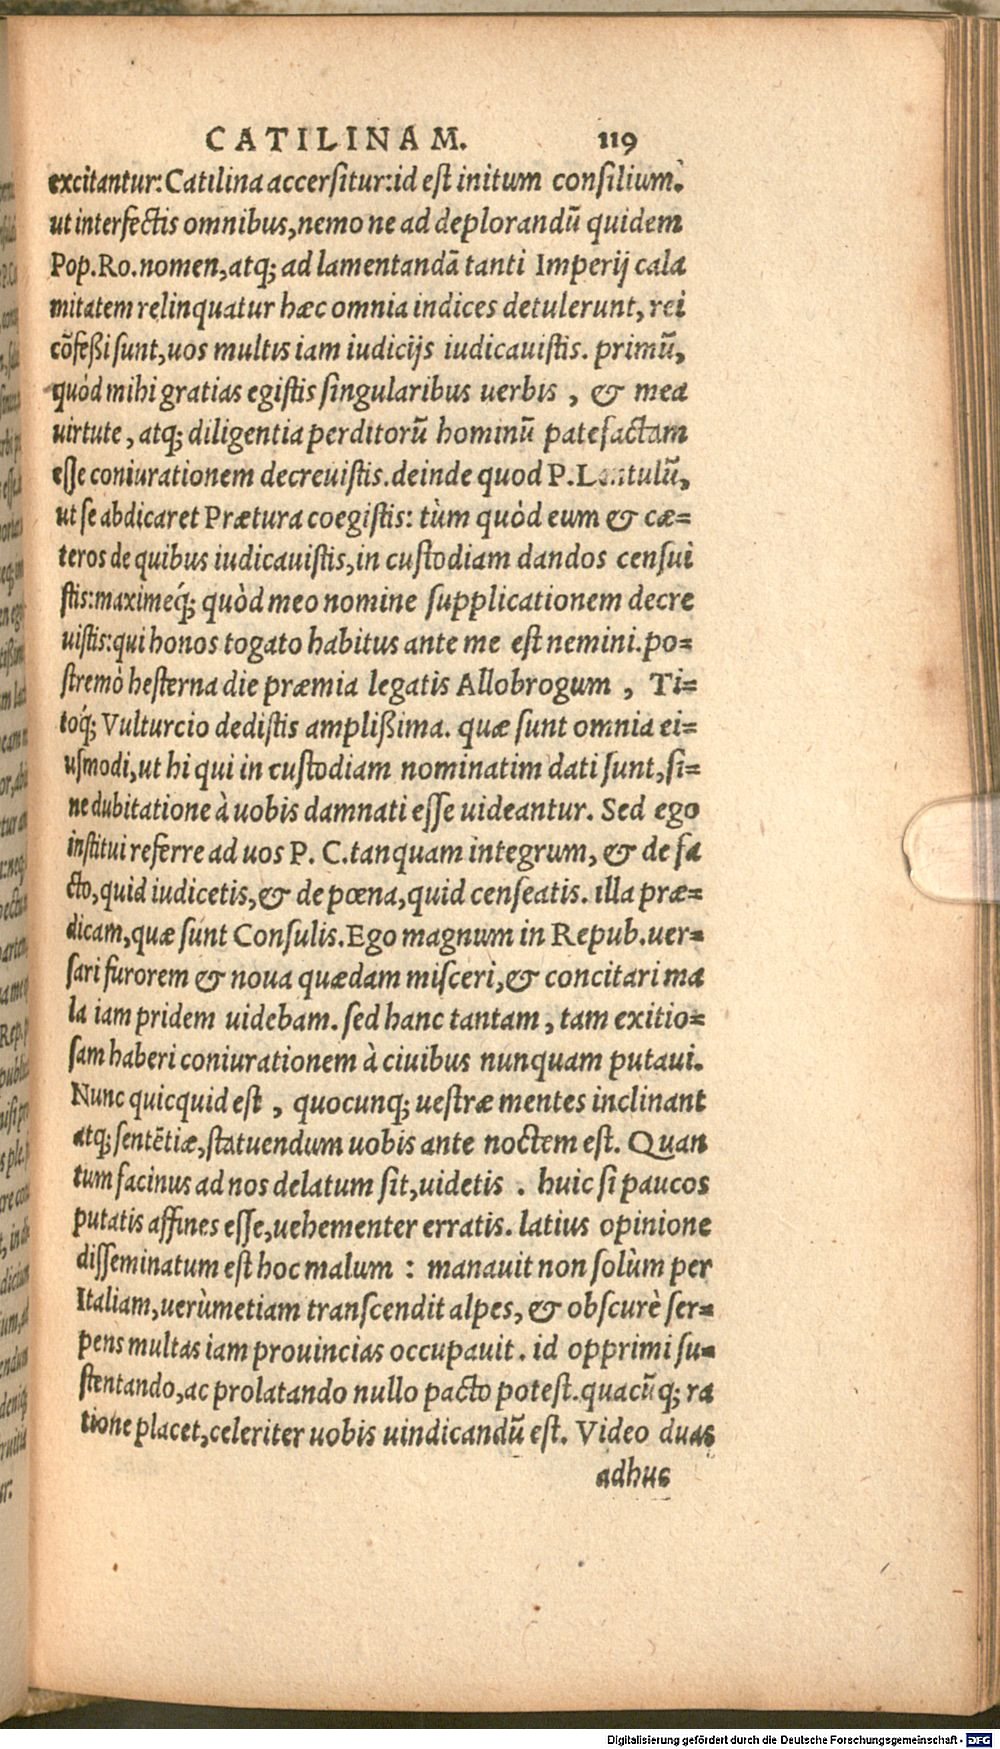 CATILINAM. 119
excitantur: Catilina accersitur: id est initum consilium.
ut interfectis omnibus, nemo ne ad deplorandū quidem
Pop. Ro. nomen, atq; ad lamentandā tanti Imperij cala
mitatem relinquatur hæc omnia indices detulerunt, rei
cōfeßi sunt, uos multis iam iudicijs iudicauistis. primū,
quòd mihi gratias egistis singularibus uerbis, & mea
uirtute, atq; diligentia perditorū hominū patefactam
esse coniurationem decreuistis. deinde quod P. Lentulū,
ut se abdicaret Prætura coegistis: tùm quòd eum & cæ=
teros de quibus iudicauistis, in custodiam dandos censui
stis: maximeq́; quòd meo nomine supplicationem decre
uistis: qui honos togato habitus ante me est nemini. po=
stremò hesterna die præmia legatis Allobrogum, Ti=
toq́; Vulturcio dedistis amplißima. quæ sunt omnia ei=
usmodi, ut hi qui in custodiam nominatim dati sunt, si=
ne dubitatione à uobis damnati esse uideantur. Sed ego
institui referre ad uos P. C. tanquam integrum, & de fa
cto, quid iudicetis, & de pœna, quid censeatis. illa præ=
dicam, quæ sunt Consulis. Ego magnum in Repub. uer=
sari furorem & noua quædam misceri, & concitari ma
la iam pridem uidebam. sed hanc tantam, tam exitio=
sam haberi coniurationem à ciuibus nunquam putaui.
Nunc quicquid est, quocunq; uestræ mentes inclinant
atq; sentētiæ, statuendum uobis ante noctem est. Quan
tum facinus ad nos delatum sit, uidetis. huic si paucos
putatis affines esse, uehementer erratis. latius opinione
disseminatum est hoc malum: manauit non solùm per
Italiam, uerùmetiam transcendit alpes, & obscurè ser=
pens multas iam prouincias occupauit. id opprimi su=
stentando, ac prolatando nullo pacto potest. quacūq; ra
tione placet, celeriter uobis uindicandū est. Video duas
adhuc
Digitalisierung gefördert durch die Deutsche Forschungsgemeinschaft - DFG